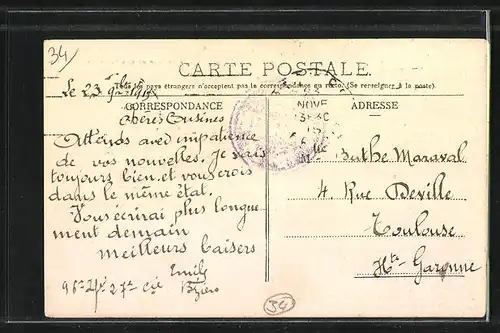 34
CARTE POSTALE
Tous les pays étrangers n'acceptent pas la correspondance au recto. (Se renseigner à la poste).
Le 23 9bre 1915
CORRESPONDANCE
Chères Cousines
Attends avec impatience
de vos nouvelles. Je vais
toujours bien et vous crois
dans le même état.
Vous écrirai plus longue
ment demain
meilleurs baisers
Emily
96e 27e Cie Béziers
NOVE
15
ADRESSE
Mlle Berthe Maraval
4. Rue Deville
Toulouse
Hte Garonne
34